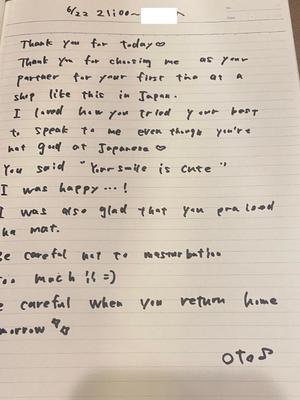 6/22 21:00~
Thank you for today♡
Thank you for choosing me as your
partner for your first time at a
shop like this in Japan.
I loved how you tried your best
to speak to me even though you're
not good at Japanese♡
You said "Your smile is cute"
I was happy…!
I was also glad that you praised
he mat.
Be careful not to masturbation
too much!! =)
e careful when you return home
morrow